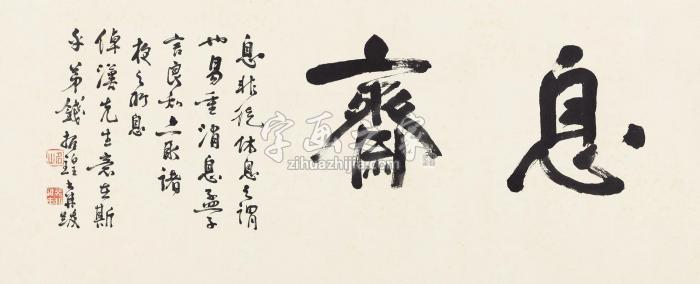 息齋
息非徒休息之謂
也易重消息孟子
言良知亦取諸
夜之所息
倬漢先生意在斯
乎弟錢振鍠書并跋
字画之家
zihuazhijia.com